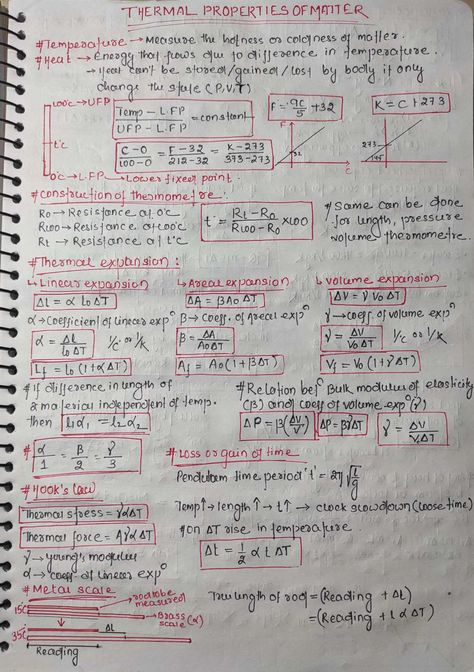 THERMAL PROPERTIES OF MATTER
# Temperature → Measure the hotness or coldness of matter.
# Heat → Energy that flows due to difference in temperature.
→ Heat can't be stored/gained/lost by body it only
change the state (P,V,T)
100°C → UFP
Temp - LFP / UFP - LFP = constant
F = 9C/5 + 32
K = C + 273
t°C
C-0/100-0 = F-32/212-32 = K-273/373-273
F
32
C
273
0°C → L.FP → Lower fixed point.
# Construction of thermometre.
R0 → Resistance at 0°C
R100 → Resistance at 100°C
Rt → Resistance at t°C
t = Rt - R0 / R100 - R0 × 100
# Same can be done
for length, pressure
volume thermometre.
# Thermal expansion:
↳ Linear expansion
Δl = α l0 ΔT
α → Coefficient of linear expⁿ
α = Δl / l0 ΔT 1/°C or 1/K
Lf = l0 (1 + α ΔT)
↳ Areal expansion
ΔA = β A0 ΔT
β → Coeff. of Areal expⁿ
β = ΔA / A0 ΔT
Af = A0 (1 + β ΔT)
↳ Volume expansion
ΔV = γ V0 ΔT
γ → Coeff of volume expⁿ
γ = ΔV / V0 ΔT 1/°C or 1/K
Vf = V0 (1 + γ ΔT)
# If difference in length of
2 material independent of temp.
then l1 α1 = l2 α2
# Relation betⁿ Bulk modulus of elasticity
(β) and coeff of volume expⁿ (γ)
ΔP = β (ΔV/V) ΔP = βγΔT γ = ΔV / V ΔT
# α/1 = β/2 = γ/3
# Loss or gain of time
Pendulum time period 't' = 2π √(L/g)
Temp↑ → length↑ → t↑ → clock slow down (loose time)
# on ΔT rise in temperature.
Δt = 1/2 α t ΔT
# Hook's law
Thermal stress = Y α ΔT
Thermal force = A Y α ΔT
Y → Young's modulus
α → coeff of linear expⁿ
# Metal scale
15°C
→ rod to be
measured
→ Brass
scale (α)
35°C
Δl
Reading
True length of rod = (Reading + Δl)
= (Reading + l α ΔT)